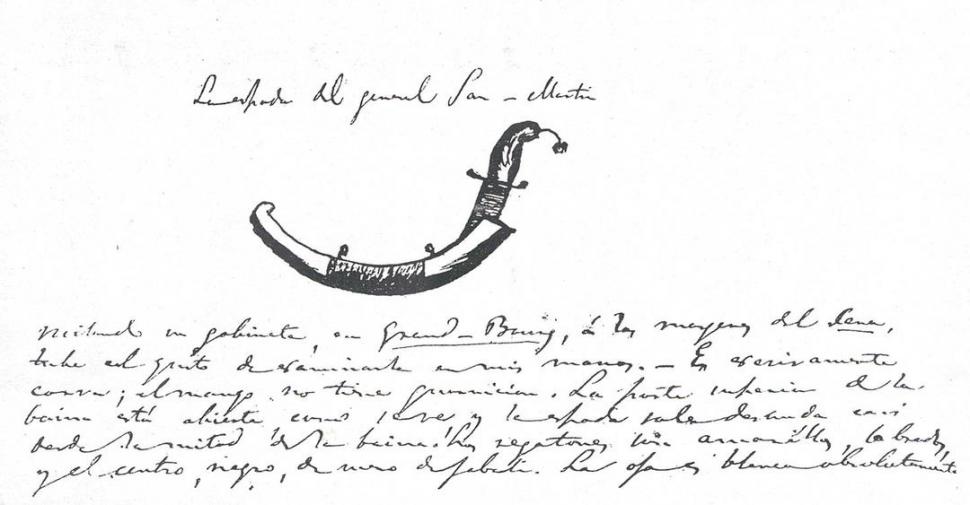 La espada del general San-Martin
Visitando su gabinete, en Grand-Bourg, á las margenes del Sena,
tube el gusto de examinarla en mis manos. — Es excesivamente
corva; el mango no tiene guarnicion. La parte superior de la
baina está abierta, como se ve y la espada sale desnuda casi
desde la mitad de la baina. Los regatones son amarillos, labrados,
y el centro, negro, de cuero de jabalí. La oja es blanca absolutamente